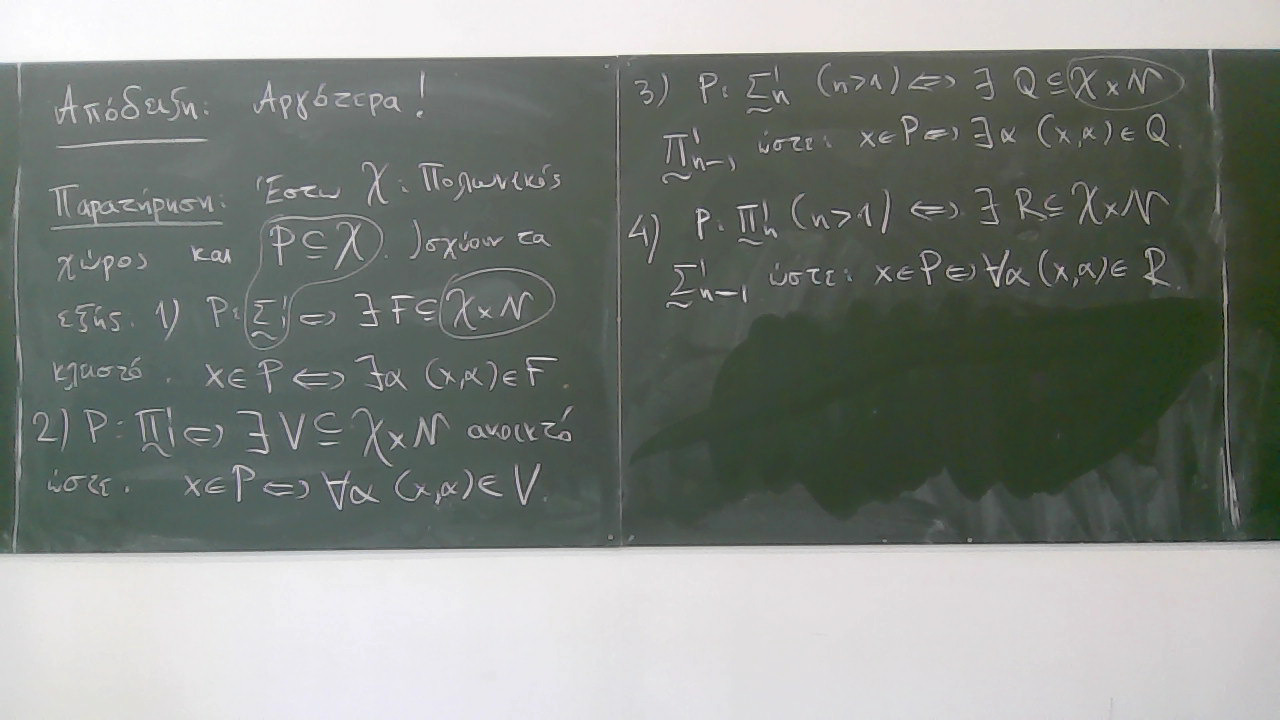 Απόδειξη: Αργότερα!
Παρατήρηση: Έστω 𝒳: Πολωνικός
χώρος και P ⊆ 𝒳. Ισχύουν τα
εξής. 1) P: Σ̰¹₁ ⇔ ∃ F ⊆ 𝒳 × 𝒩
κλειστό. x ∈ P ⇔ ∃α (x,α) ∈ F.
2) P: Π̰¹₁ ⇔ ∃ V ⊆ 𝒳 × 𝒩 ανοικτό
ώστε. x ∈ P ⇔ ∀α (x,α) ∈ V.
3) P: Σ̰¹ₙ (n>1) ⇔ ∃ Q ⊆ 𝒳 × 𝒩
Π̰¹ₙ₋₁ ώστε: x ∈ P ⇔ ∃α (x,α) ∈ Q.
4) P: Π̰¹ₙ (n>1) ⇔ ∃ R ⊆ 𝒳 × 𝒩
Σ̰¹ₙ₋₁ ώστε: x ∈ P ⇔ ∀α (x,α) ∈ R.